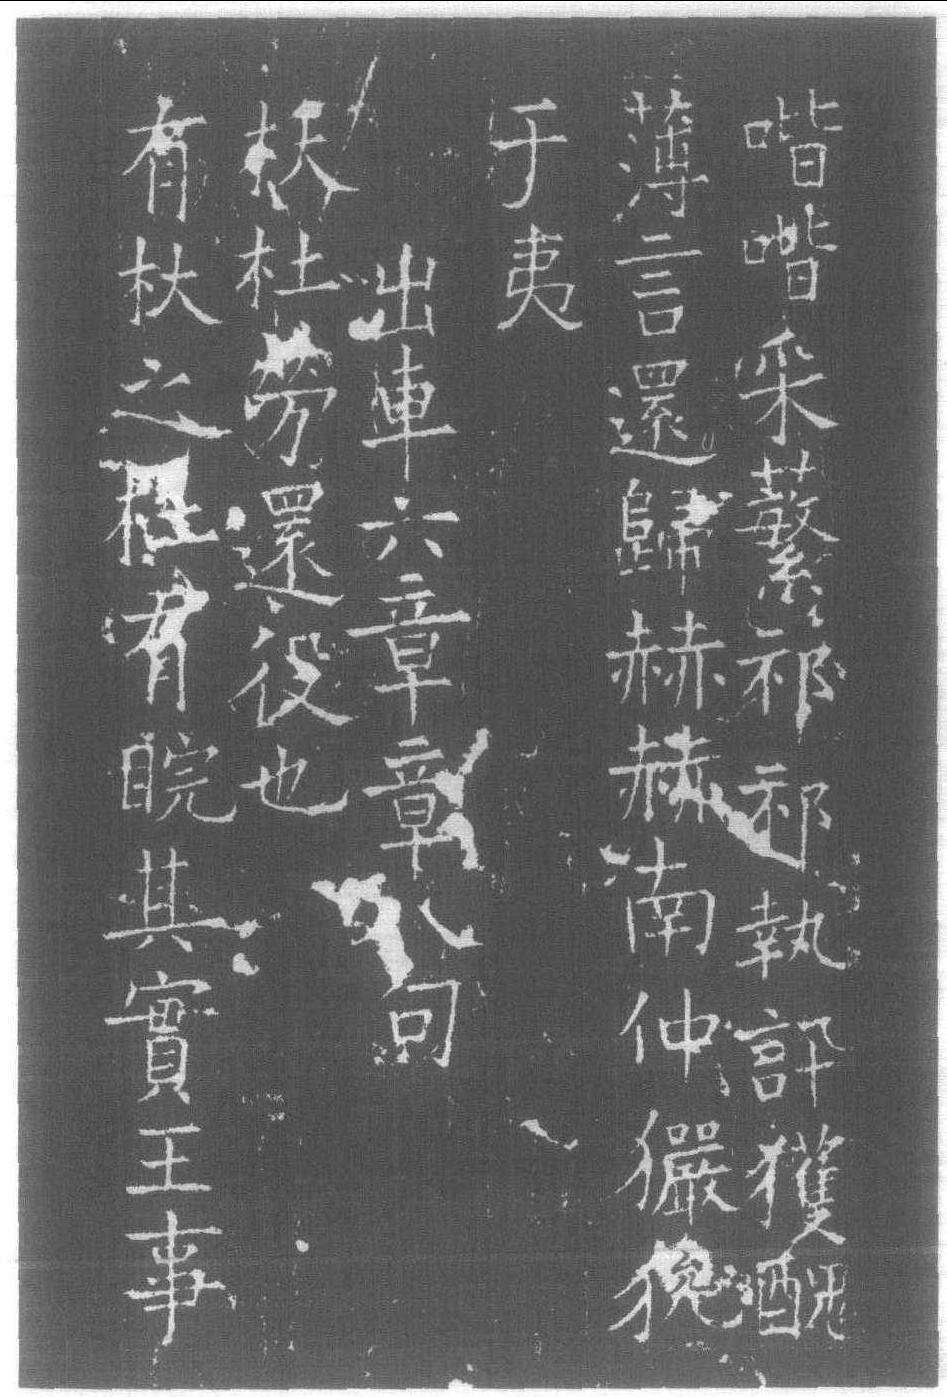 喈喈采蘩祁祁執訊獲醜
薄言還歸赫赫南仲玁狁
于夷
出車六章章八句
杕杜勞還役也
有杕之杜有睆其實王事